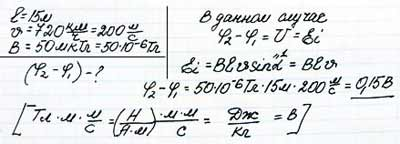 ℓ = 15м
v = 720 км/ч = 200 м/с
B = 50 мкТл = 50·10⁻⁶ Тл
(φ₂ - φ₁) - ?
В данном случае
φ₂ - φ₁ = U = Ei
Ei = Bℓv sin α = Bℓv
φ₂ - φ₁ = 50·10⁻⁶ Тл · 15м · 200 м/с = 0,15В
[Тл · м · м/с = (Н/А·м) · м · м/с = Дж/Кл = В]